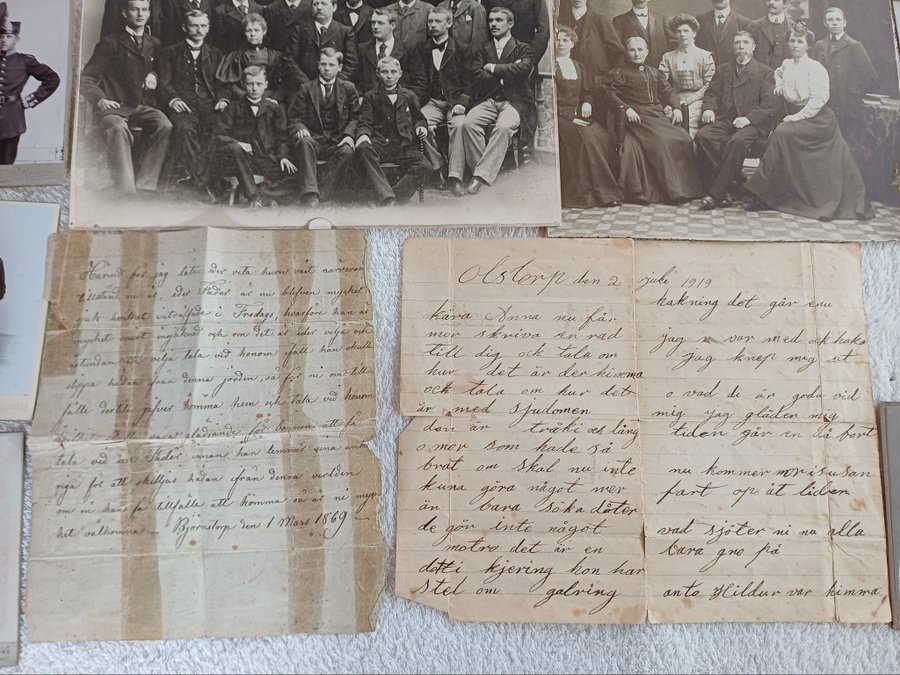 Härmed får jag låta eder veta huru vårt närvaran
tillstånd nu är, eder Fader är nu blefven mycket
sjuk hvilket inträffade i Fredags, hvarföre han är
mycket svårt och om det är eder vilja och
åstundan att vilja tala vid honom ifall han skulle
slippa hädan ifrån denna jorden, så får ni om till
fälle dertill gifves komma hem och tala vid honom
vara glädjande för barnen att få
tala vid sin Fader innan han lemnar sina anhö
riga för att skilljas hädan ifrån denna verlden
om ni kan få tillfälle att komma så är ni myc
ket välkomna — Björnstorp den 1 Mars 1869
Olstorp den 2 juli 1919
kära Anna nu får
mor skriva en rad
till dig ock tala om
hur det är der himma
ock tala om hur det
är med sjudomen
den är träki ock lång
o mor som hade så
bråt om skal nu inte
kuna göra något mer
än bara söka dåter
de gör inte något
motro det är en
kjering hon har
stel om galring
hakning det går enu
jag var med ock haka
jag knep mig ut
o vad du är goda vid
mig jag gläder mig
tiden går en då bort
nu kommer morisusan
fart op åt liden
vad sjöter ni nu alla
bara gro på
anto Hildur var himma